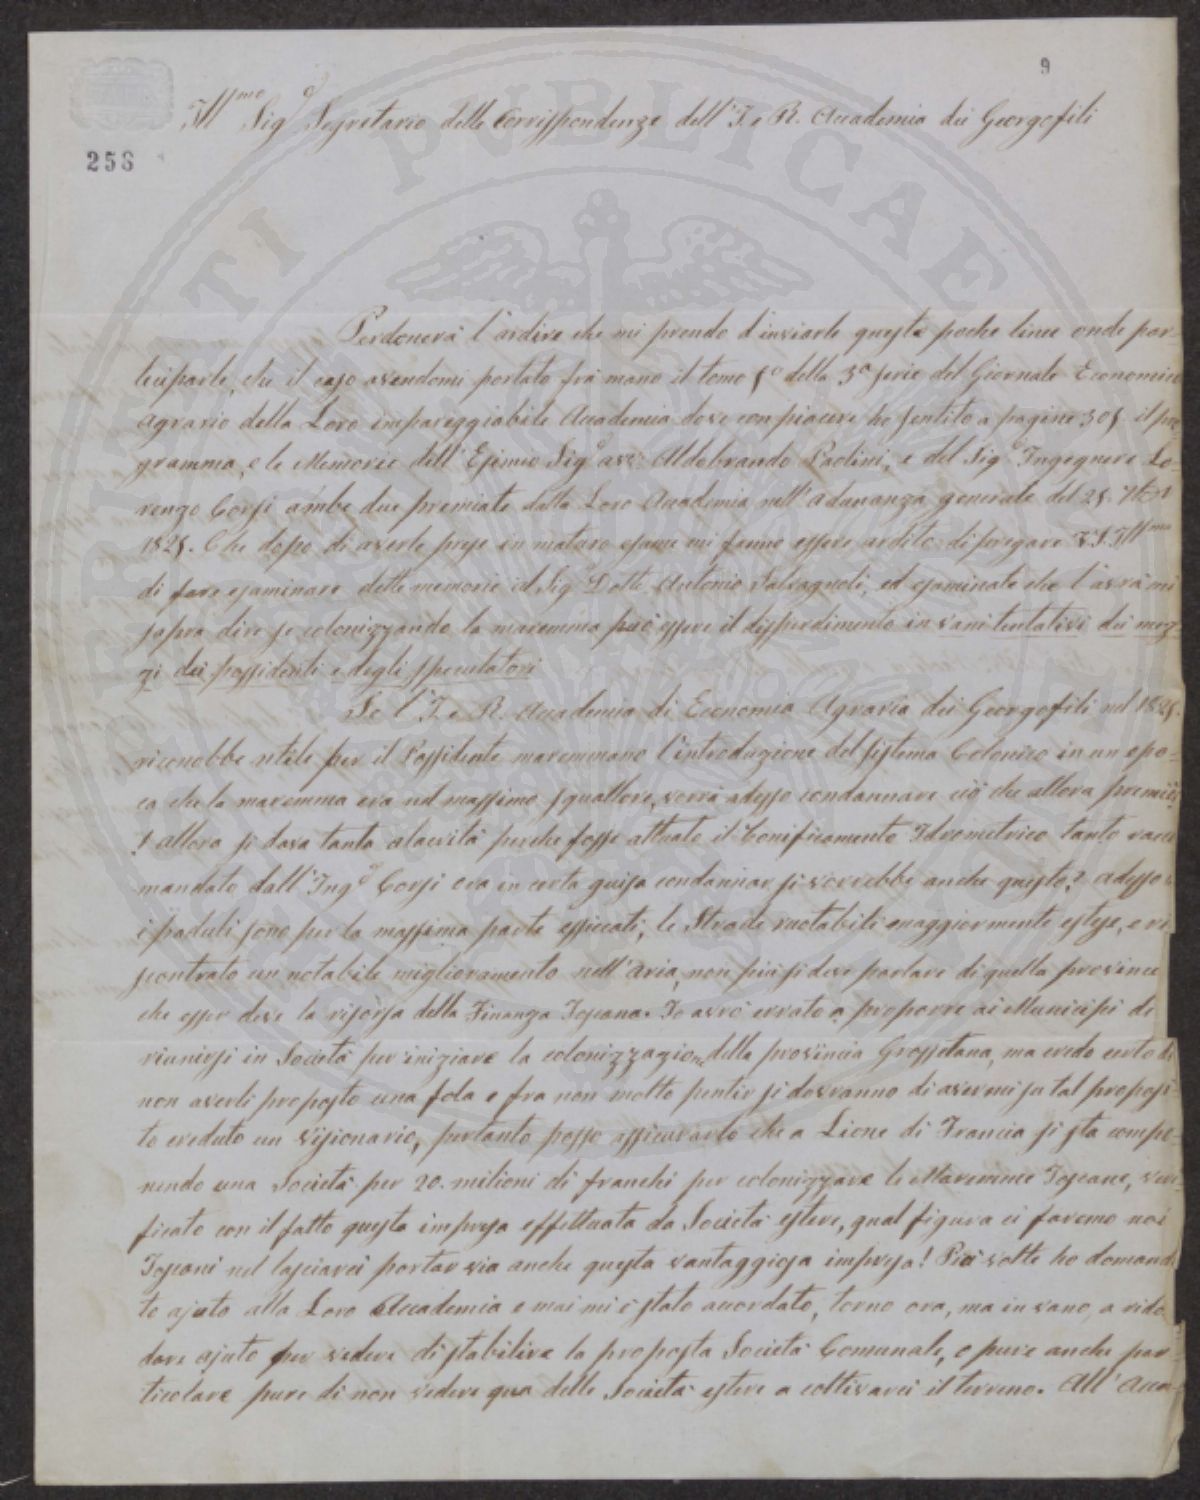 9
Ill.mo Sig.e Segretario delle Corrispondenze dell'I. e R. Accademia dei Georgofili
256
Perdonerà l'ardire che mi prendo d'inviarle queste poche linee onde par-
teciparle, che il caso avendomi portato frà mano il tomo 5.o della 3.a serie del Giornale Economico
Agrario della Loro impareggiabile Accademia dove con piacere ho sentito a pagine 305. il pro-
gramma, e le Memorie dell'Esimio Sig.e Avv. Aldobrando Paolini, e del Sig.e Ingegnere Lo-
renzo Corsi ambe due premiate dalla Loro Accademia nell'adunanza generale del 25. 7bre
1825. Che dopo di averle prese in maturo esame mi fanno essere ardito di pregare V.S. Ill.ma
di fare esaminare dette memorie al Sig.e Dott. Antonio Salvagnoli, ed esaminate che l'avrà mi
sapra dire se colonizzando la maremma può essere il disperdimento in vani tentativi dei mez-
zi dei possidenti e degli speculatori
Se l'I. e R. Accademia di Economia Agraria dei Georgofili nel 1825.
riconobbe utile per il Possidente maremmano l'introduzione del sistema Colonico in un epo-
ca che la maremma era nel massimo squallore, vorrà adesso condannare ciò che allora premiò
! allora si dava tanta alacrità perche fosse attuato il bonificamento Idrometrico tanto racco
mandato dall'Ing.e Corsi ora in certa guisa condannar si vorrebbe anche questo? adesso
i paduli sono per la massima parte essiccati, le Strade ruotabili maggiormente estese, e ri
scontrato un notabile miglioramento nell'aria, non più si deve parlare di quella provincia
che esser deve la risorsa della Finanza Toscana. Io avrò errato a proporre ai Municipi di
riunirsi in Società per iniziare la colonizzazione della provincia Grossetana, ma credo certo di
non averli proposto una fola e fra non molto pentir si dovranno di avermi su tal proposi-
to creduto un visionario, pertanto posso assicurarlo che a Lione di Francia si sta compo-
nendo una Società per 20. milioni di franchi per colonizzare le Maremme Toscane, veri-
ficato con il fatto questa impresa effettuata da Società estere, qual figura ci faremo noi
Toscani nel lasciarci portar via anche questa vantaggiosa impresa! Più volte ho domanda
to ajuto alla Loro Accademia e mai mi è stato accordato, torno ora, ma in vano, a rido
dare ajuto per vedere di stabilire la proposta Società Comunale, o pure anche par-
ticolare pure di non vedere qua delle Società estere a coltivarci il terreno. All'Acca-
PUBLICAE